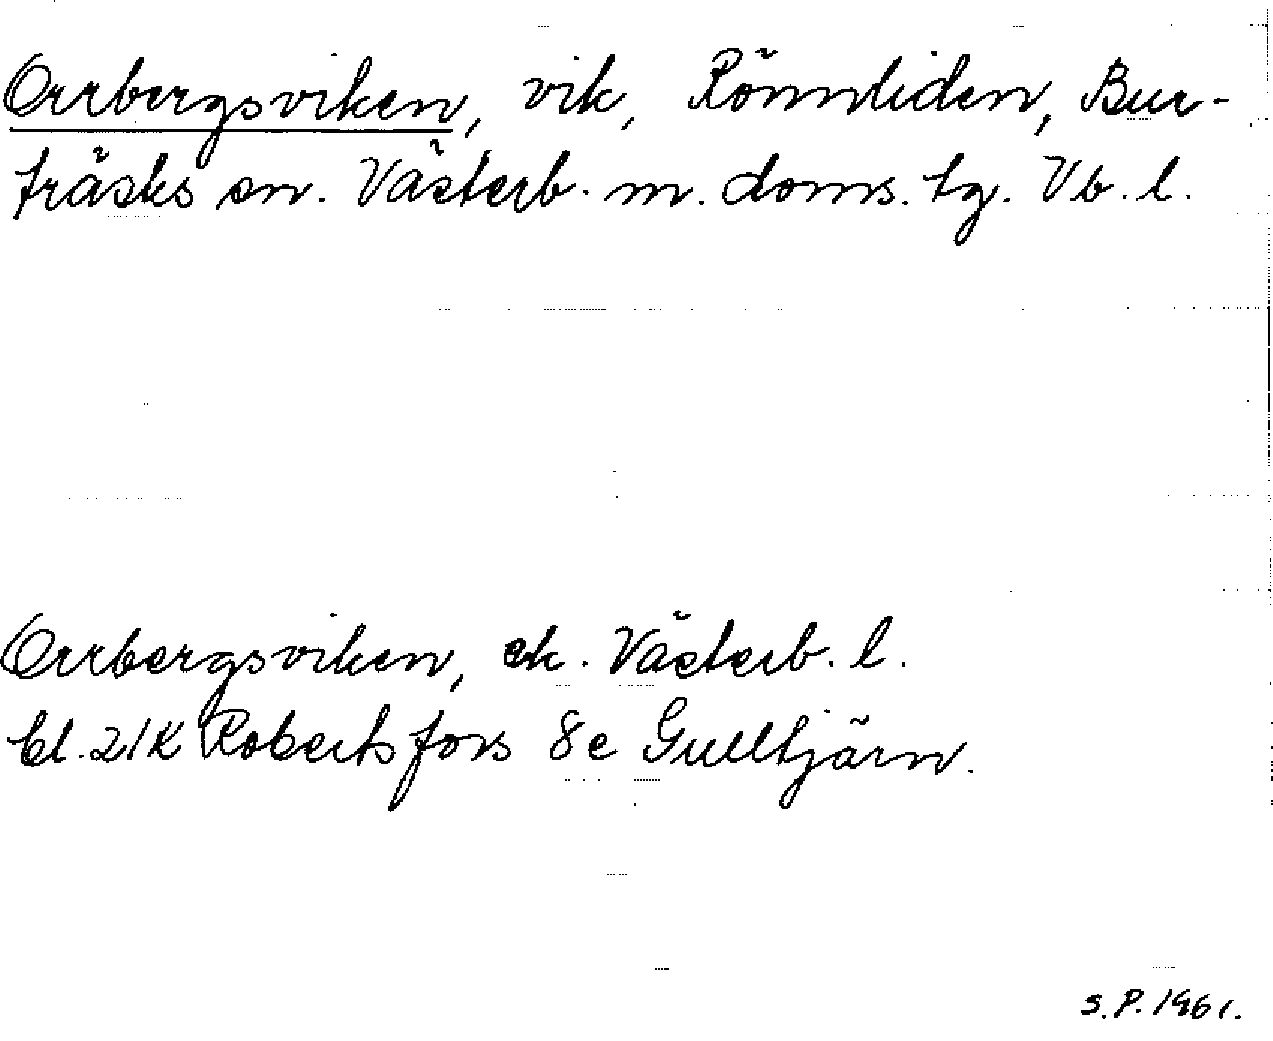 Orrbergsviken, vik, Rönnliden, Bur-
träsks sn. Västerb. m. doms. tg. Vb. l.
Orrbergsviken, ek. Västerb. l.
bl. 21K Robertsfors 8e Gulltjärn.
S.P. 1961.